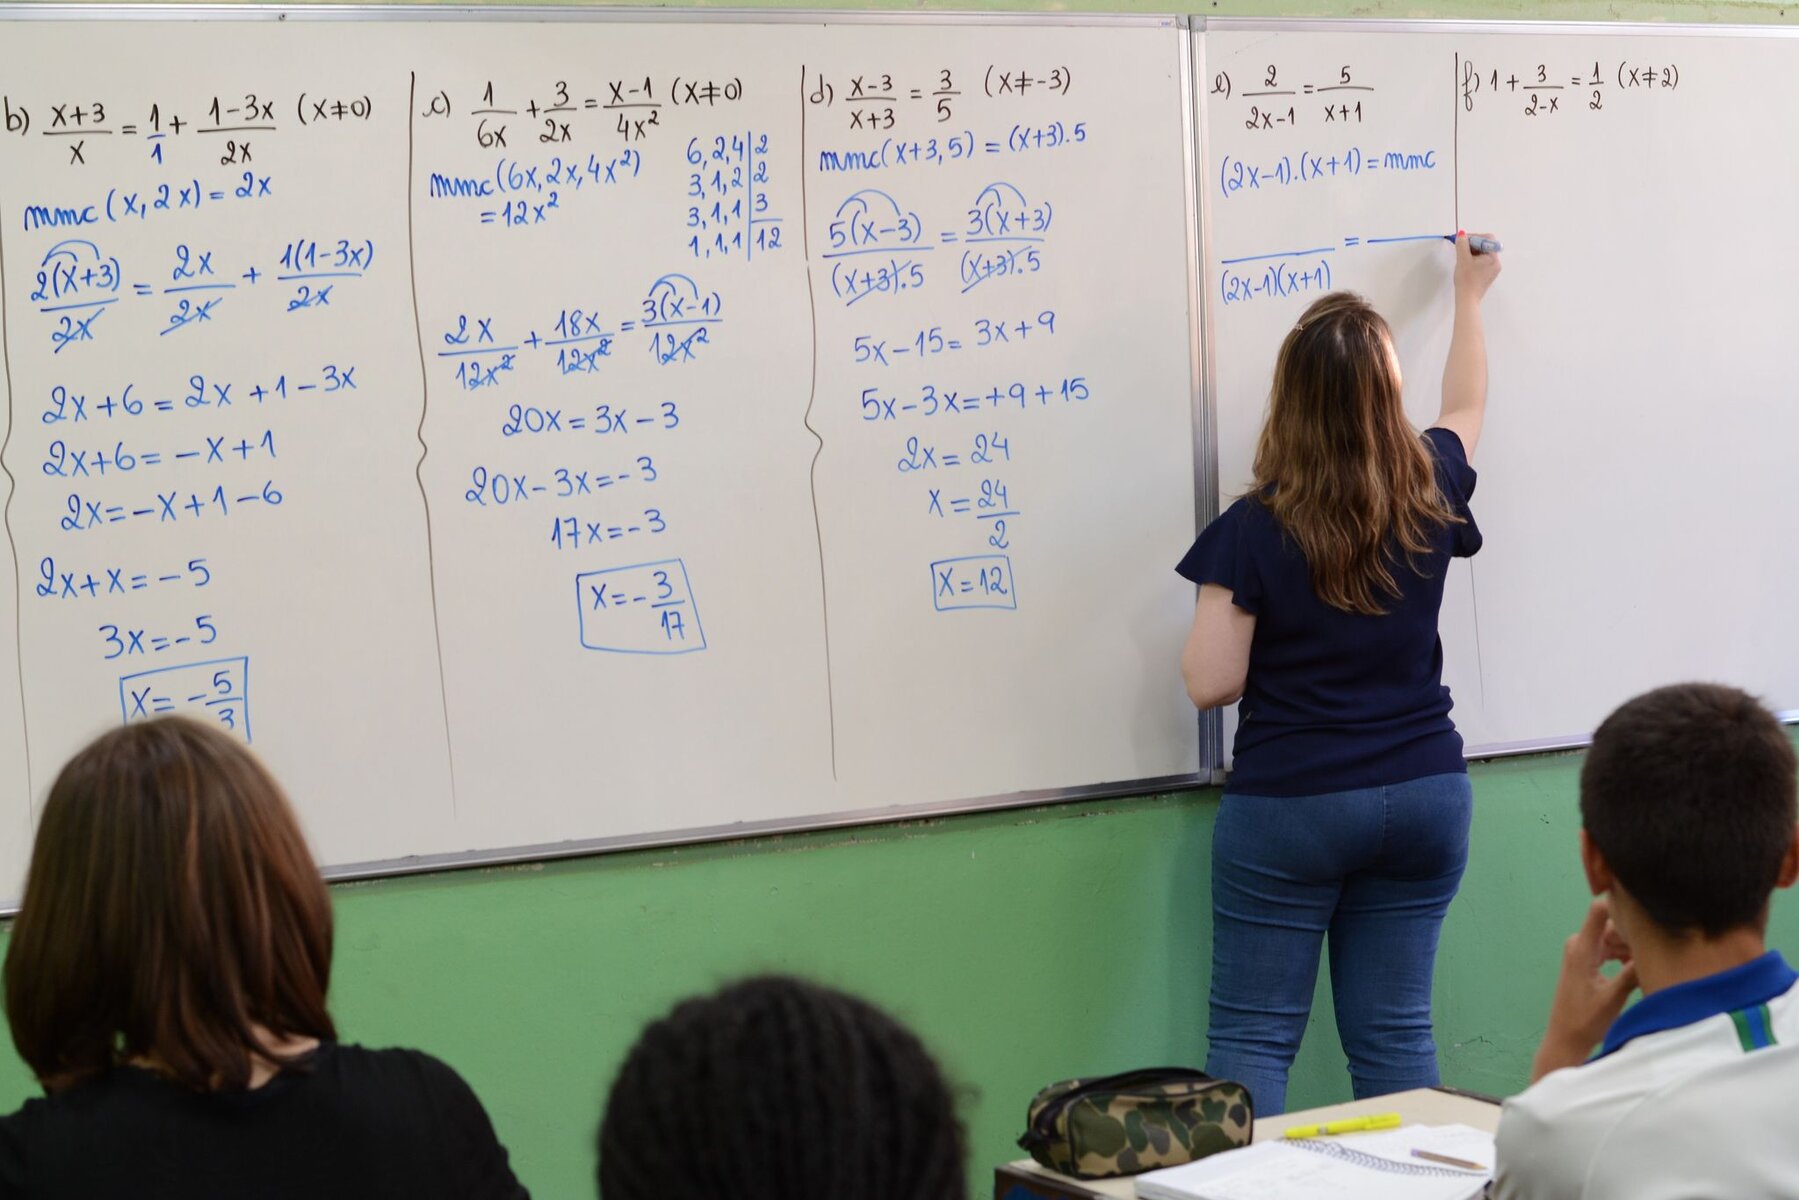 b) x+3/x = 1/1 + 1-3x/2x (x≠0)
mmc (x, 2x) = 2x
2(x+3)/2x = 2x/2x + 1(1-3x)/2x
2x+6 = 2x +1-3x
2x+6 = -x+1
2x = -x+1-6
2x+x = -5
3x = -5
x = -5/3
c) 1/6x + 3/2x = x-1/4x² (x≠0)
mmc(6x, 2x, 4x²)
= 12x²
6, 2, 4 | 2
3, 1, 2 | 2
3, 1, 1 | 3
1, 1, 1 | 12
2x/12x² + 18x/12x² = 3(x-1)/12x²
20x = 3x-3
20x-3x = -3
17x = -3
x = -3/17
d) x-3/x+3 = 3/5 (x≠-3)
mmc(x+3, 5) = (x+3).5
5(x-3)/(x+3).5 = 3(x+3)/(x+3).5
5x-15 = 3x+9
5x-3x = +9+15
2x = 24
x = 24/2
x = 12
e) 2/2x-1 = 5/x+1
(2x-1).(x+1) = mmc
/(2x-1)(x+1) =
f) 1 + 3/2-x = 1/2 (x≠2)